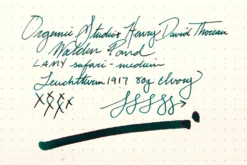 Organic Studios Henry David Thoreau
Walden Pond
LAMY safari - medium
Leuchtturm1917 80g Ivory